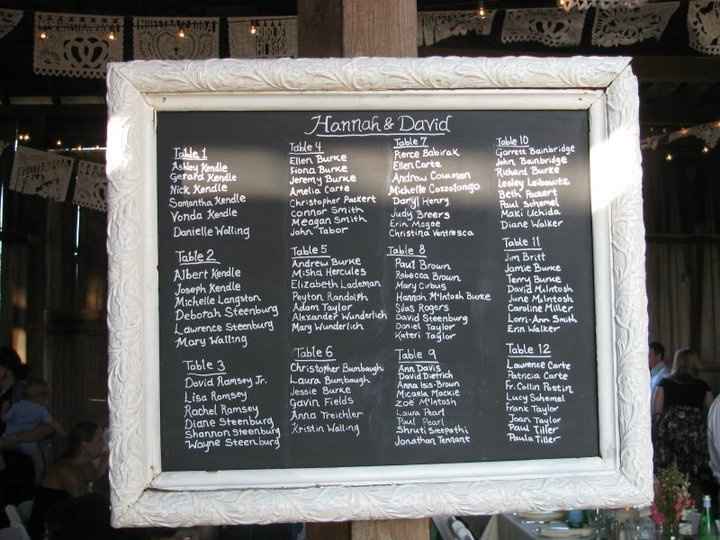 Hannah & David
Table 1
Ashley Kendle
Gerard Kendle
Nick Kendle
Samantha Kendle
Vonda Kendle
Danielle Walling
Table 2
Albert Kendle
Joseph Kendle
Michelle Langston
Deborah Steenburg
Lawrence Steenburg
Mary Walling
Table 3
David Ramsey Jr.
Lisa Ramsey
Rachel Ramsey
Diane Steenburg
Shannon Steenburg
Wayne Steenburg
Table 4
Ellen Burke
Fiona Burke
Jeremy Burke
Amelia Carte
Christopher Packert
Connor Smith
Meagan Smith
John Tabor
Table 5
Andrew Burke
Misha Hercules
Elizabeth Lademan
Peyton Randolph
Adam Taylor
Alexander Wunderlich
Mary Wunderlich
Table 6
Christopher Bumbaugh
Laura Bumbaugh
Jessie Burke
Gavin Fields
Anna Treichler
Kristin Walling
Table 7
Pierce Babirak
Ellen Carte
Andrew
Michelle Cazzolongo
Daryl Henry
Judy Breers
Erin Magee
Christina Ventresca
Table 8
Paul Brown
Rebecca Brown
Mary Cirbus
Hannah McIntosh Burke
Silas Rogers
David Steenburg
Daniel Taylor
Kateri Taylor
Table 9
Ann Davis
David Dietrich
Anna Iss-Brown
Micaela Mackie
Zoë McIntosh
Laura Pearl
Paul Pearl
Shruti
Jonathan Tennant
Table 10
Garrett Bainbridge
John Bainbridge
Richard Burke
Lesley Leibowitz
Beth Packert
Paul Schemel
Maki Uchida
Diane Walker
Table 11
Jim Britt
Jamie Burke
Terry Burke
David McIntosh
June McIntosh
Caroline Miller
Lorri-Ann Smith
Erin Walker
Table 12
Lawrence Carte
Patricia Carte
Fr. Collin Poston
Lucy Schemel
Frank Taylor
Joan Taylor
Paul Tiller
Paula Tiller